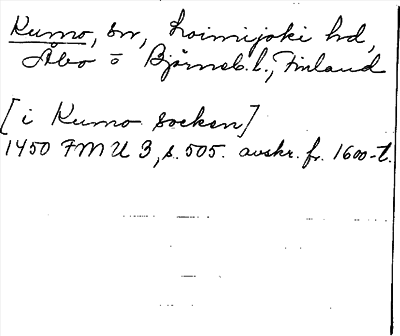 Kumo, sn, Loimijoki hd,
Åbo o Björneb. l., Finland
[i Kumo socken]
1450 FMU 3, s. 505. avskr. fr. 1600-t.